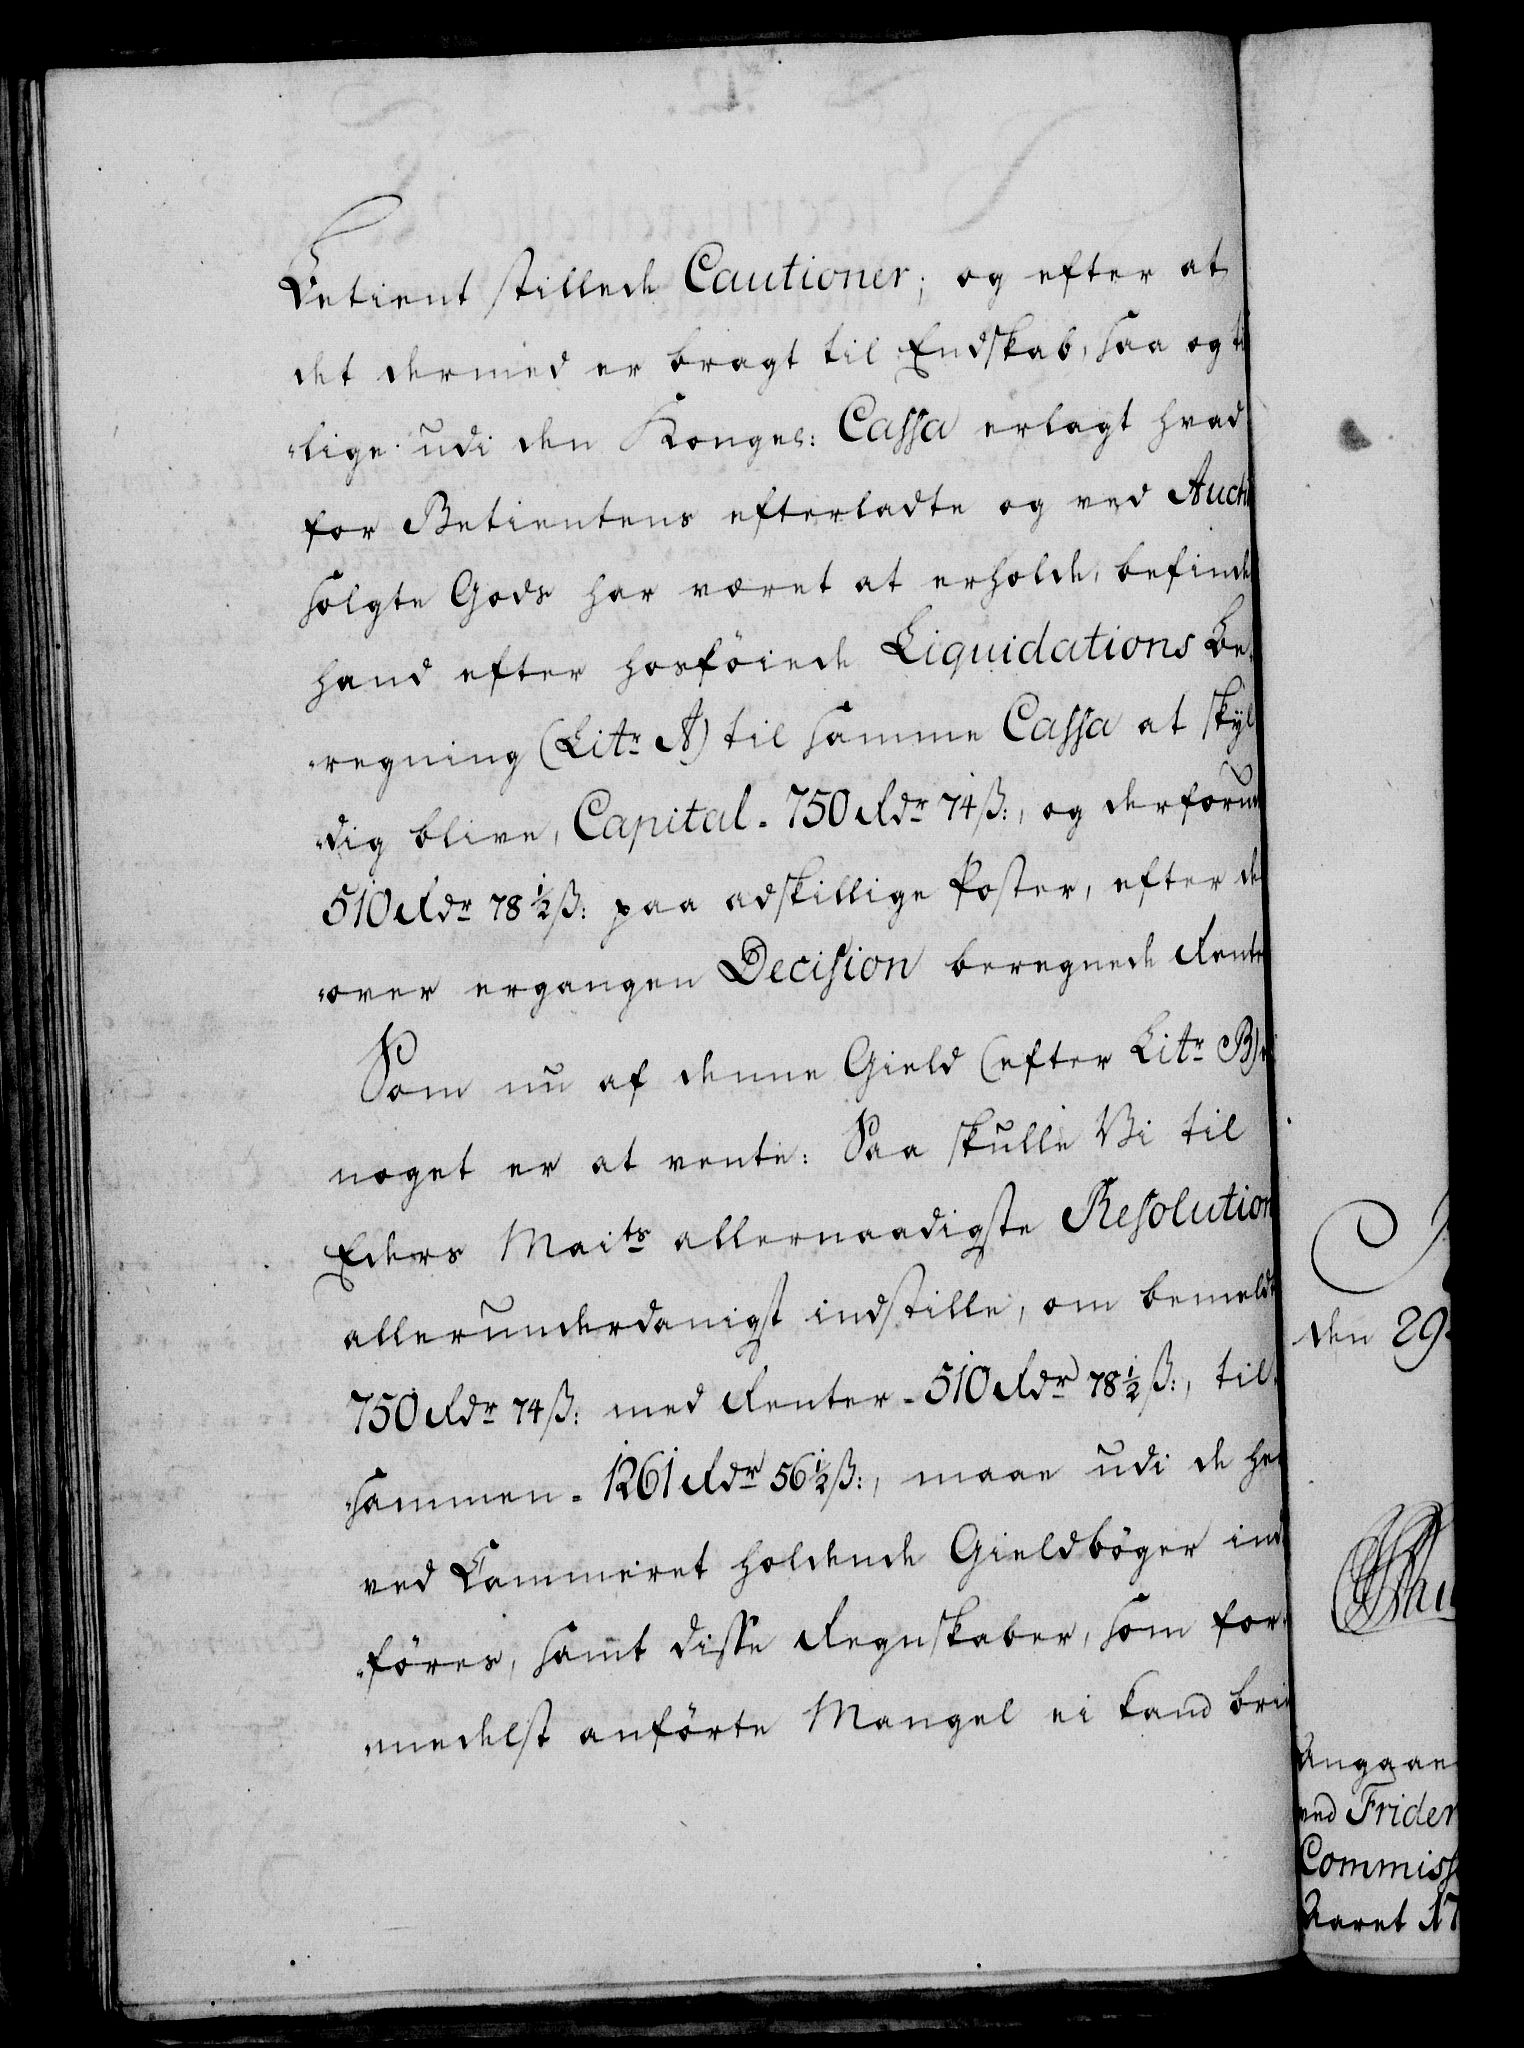 Betient stillede Cautioner; og efter at
det dermed er bragt til Endskab, saa og
lige udi den Kongel: Cassa erlagt hvad
for Betientens efterladte og ved
solgte Gods har været at erholde, befinde
hand efter hosföiede Liquidations Be-
regning (Litr A) til samme Cassa at skyl
dig blive, Capital - 750 Rdr 74 ß:, og
510 Rdr 78 1/2 ß: paa adskillige Poster, efter
over ergangen Decision beregnede
Som nu af denne Gield (efter Litr B)
noget er at vente: Saa skulle Vi til
Eders Maits allernaadigste Resolution
allerunderdanigst indstille, om
750 Rdr 74 ß: med Renter - 510 Rdr 78 1/2 ß:, til
sammen - 1261 Rdr 56 1/2 ß:, maae udi de
ved Cammeret holdende Gieldböger ind
föres, samt disse Regnskaber, som for
medelst anförte Mangel ei kand
den 29
Angaaen
ved Frider
Commiss
Aaret 17